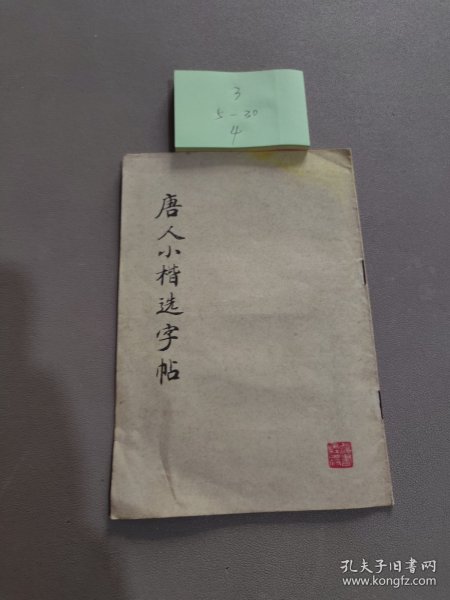 3
5-20
4
唐人小楷选字帖
孔夫子旧书网
www.kongfz.com